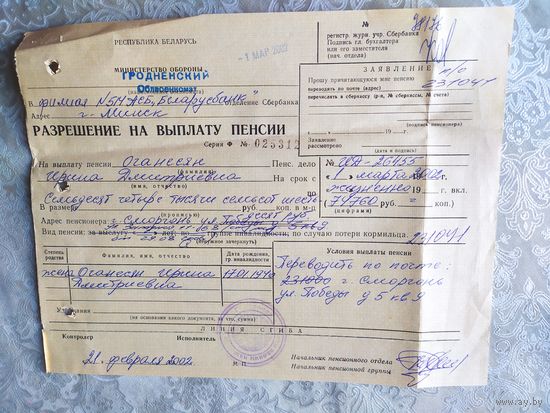 № 
регистр. журн. учр. Сбербанка
Подпись гл. бухгалтера
или его заместителя
(нач. отдела)
РЕСПУБЛИКА БЕЛАРУСЬ
-1 МАР 2002
МИНИСТЕРСТВО ОБОРОНЫ
ГРОДНЕНСКИЙ
Облвоенкомат
ЗАЯВЛЕНИЕ
Прошу причитающуюся мне пенсию п/о
переводить по почте (адрес) 231041
перечислять в сбербанк (р-н, № сберкассы, № счета)
В филиал №511 АСБ „Беларусбанк" отделение Сбербанка
Адрес г. Минск
РАЗРЕШЕНИЕ НА ВЫПЛАТУ ПЕНСИИ
Серия Ф № 025312
19 г.
(подпись пенсионера)
Заявление
рассмотрено
(дата и подпись)
На выплату пенсии Оганесян Пенс. дело № ИД-26455
(фамилия,
Ирина Дмитриевна На срок с „1" марта 2002 г.
(имя, отчество)
по пожизненно 19 г. вкл.
Семьдесят четыре тысячи семьсот шесть-
руб. коп. в м-ц (74760 руб. = коп.)
(прописью) десят руб. (цифрами)
Адрес пенсионера г. Сморгонь ул. Победы
Вид пенсии: за выслугу лет, по инвалидности, по случаю потери кормильца. 231041
(ненужное зачеркнуть)
Степень родства
Фамилия, имя, отчество
Дата рождения, гр. инвалидности
Условия выплаты пенсии
жена Оганесян Ирина 17.01.1940
Дмитриевна
Переводить по почте:
231000 г. Сморгонь
ул. Победы д 5 кв 9
Удержания
(на основании какого документа, за что, сумма)
ЛИНИЯ СГИБА
Контролер
Исполнил
21 февраля 2002 г.
М. П.
Начальник пенсионного отдела
Начальник пенсионной группы
www.ay.by